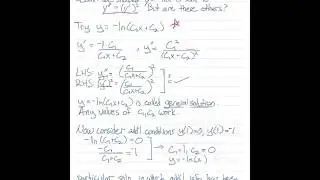 y''=(y')² But are there others?
Try y=-ln(C₁x+C₂)
y'= -C₁/(C₁x+C₂), y''= C₁²/(C₁x+C₂)²
LHS: y''= (C₁/(C₁x+C₂))²
RHS: (y')²= (-C₁/(C₁x+C₂))² ✓
y=-ln(C₁x+C₂) is called general solution.
Any values of C₁,C₂ work.
Now consider add'l conditions y(1)=0, y'(1)=-1
-ln(C₁+C₂)=0
-C₁/(C₁+C₂)=-1
C₁=1, C₂=0
y=-ln(x)
particular soln in which add'l info has been